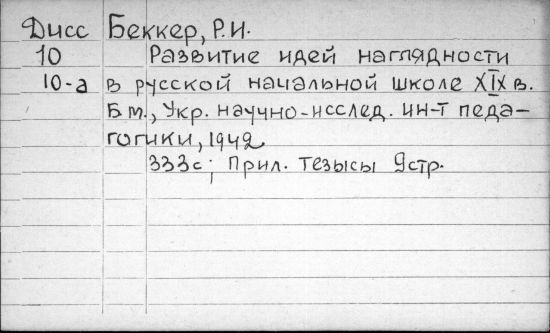 Дисс Беккер, Р.И.
10 Развитие идей наглядности
10-а в русской начальной школе XIX в.
Б.м., Укр. научно-исслед. ин-т педа-
гогики, 1942
333с; Прил. тезысы 9стр.